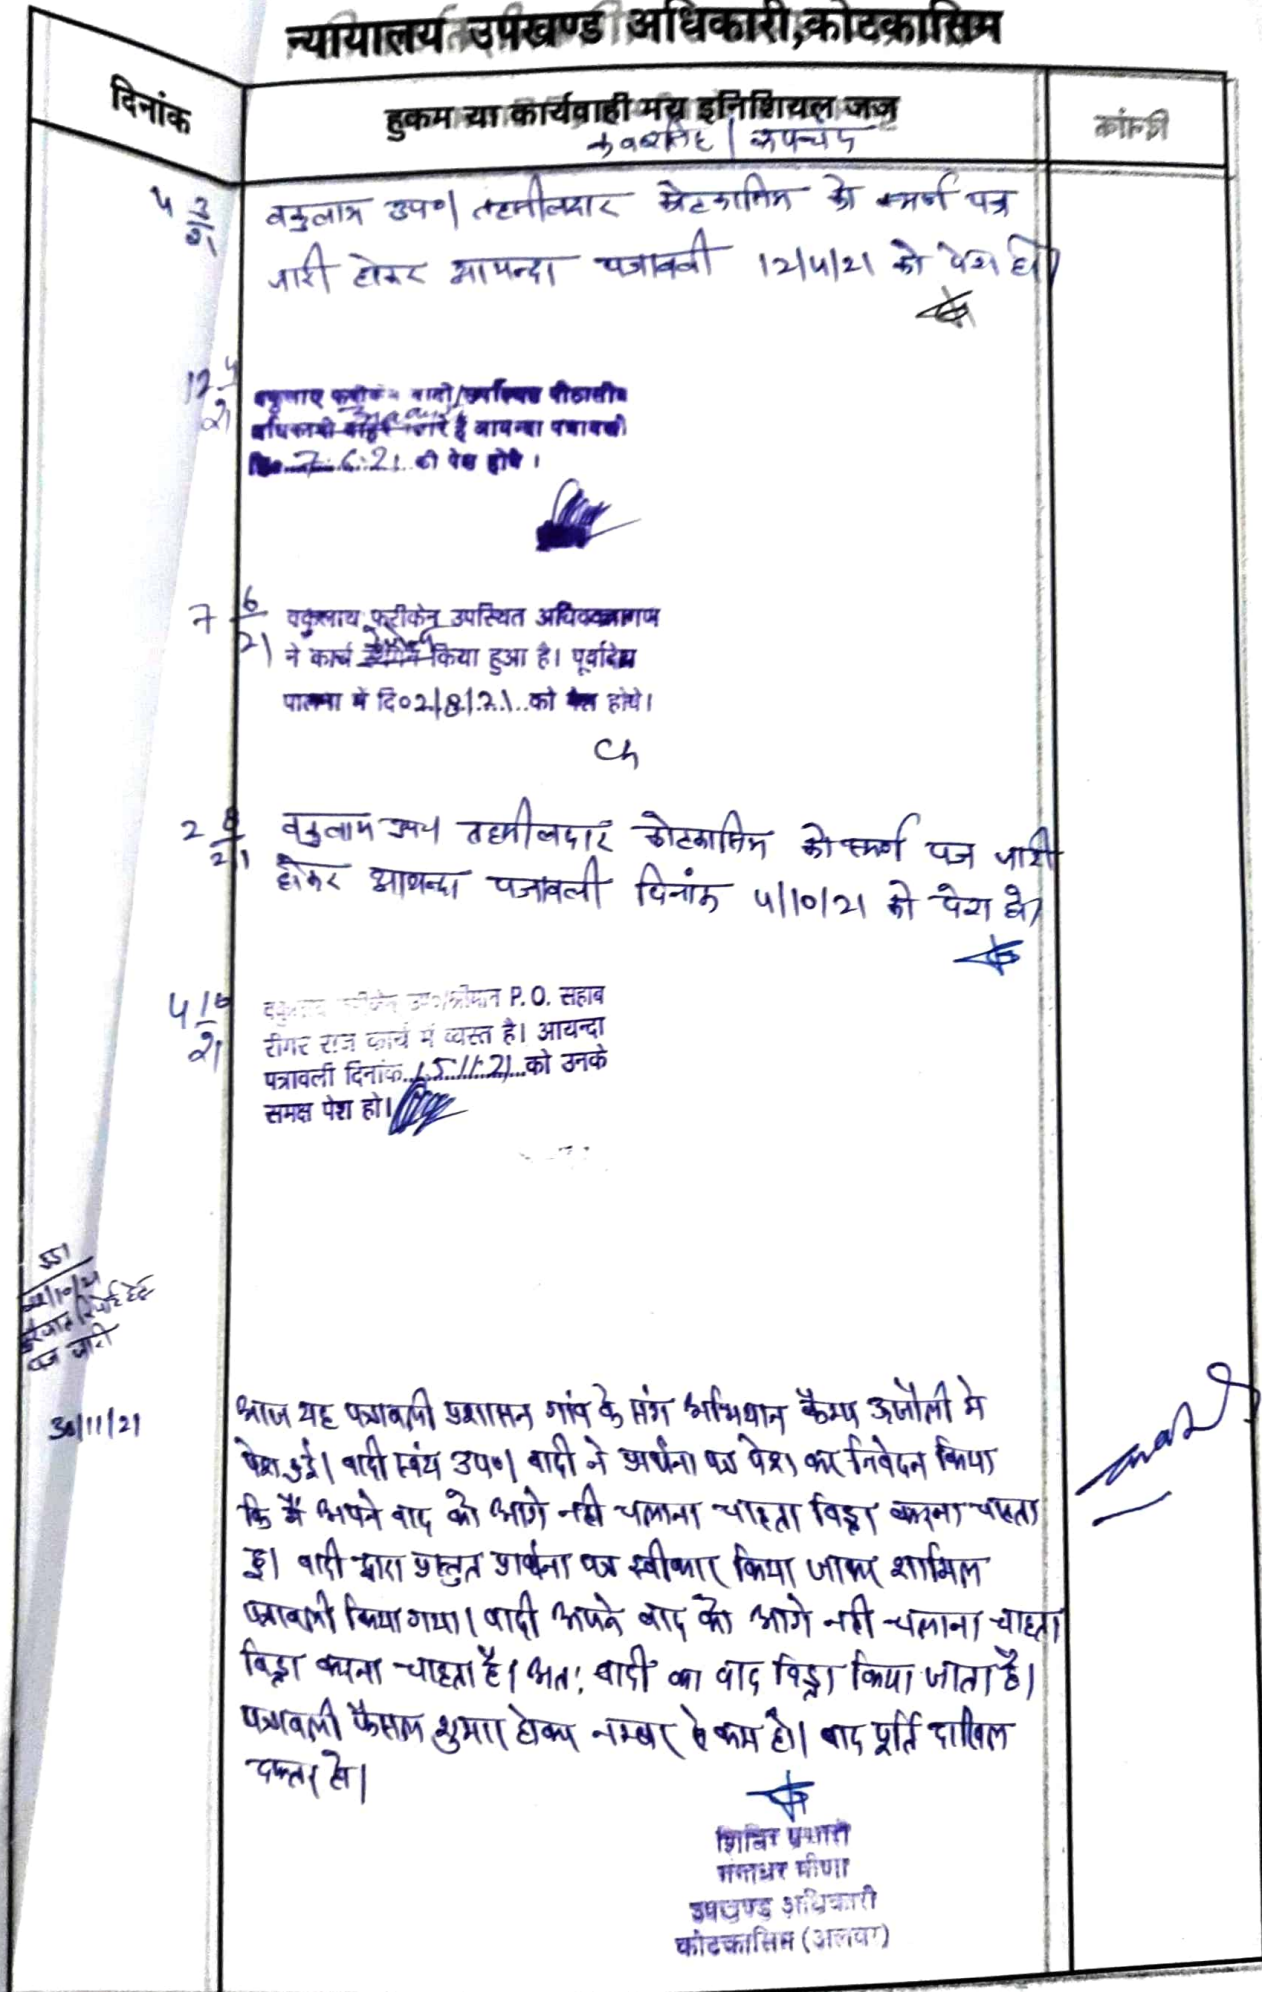 न्यायालय उपखण्ड अधिकारी,कोटकासिम
दिनांक
हुकम या कार्यवाही मय इनिशियल जज
रूपचंद
4 3/21
वकुलाय उप०। तहसीलदार कोटकासिम को स्मर्ण पत्र
जारी होकर आयन्दा पत्रावली 12/4/21 को पेश हो।
12 4/21
आयन्दा पत्रावली
7.6.21 को पेश होवे।
7 6/21
वकुलाय फरीकेन उपस्थित अधिवक्तागण
ने कार्य स्थगित किया हुआ है। पूर्वादेश
पालना में दि० 2/8/21 को पेश होवे।
2 8/21
वकुलाय उप० तहसीलदार कोटकासिम को स्मर्ण पत्र जारी
होकर आयन्दा पत्रावली दिनांक 4/10/21 को पेश हो।
4 10/21
उप०/श्रीमान P.O. सहाब
राज कार्य में व्यस्त है। आयन्दा
पत्रावली दिनांक 15.11.21 को उनके
समक्ष पेश हो।
551
/10/21
रिपोर्ट हेतु
पत्र जारी
30/11/21
आज यह पत्रावली प्रशासन गांव के संग अभियान कैम्प उजौली मे
पेश हुई। वादी स्वंय उप०। वादी ने प्रार्थना पत्र पेश कर निवेदन किया
कि मैं अपने वाद को आगे नही चलाना चाहता विड्रा करना चाहता
हू। वादी द्वारा प्रस्तुत प्रार्थना पत्र स्वीकार किया जाकर शामिल
पत्रावली किया गया। वादी अपने वाद को आगे नही चलाना चाहता
विड्रा करना चाहता है। अत: वादी का वाद विड्रा किया जाता है।
पत्रावली फैसल शुमार होकर नम्बर से कम हो। बाद पूर्ति दाखिल
दफ्तर हो।
शिविर प्रभारी
गंगाधर मीणा
उपखण्ड अधिकारी
कोटकासिम (अलवर)